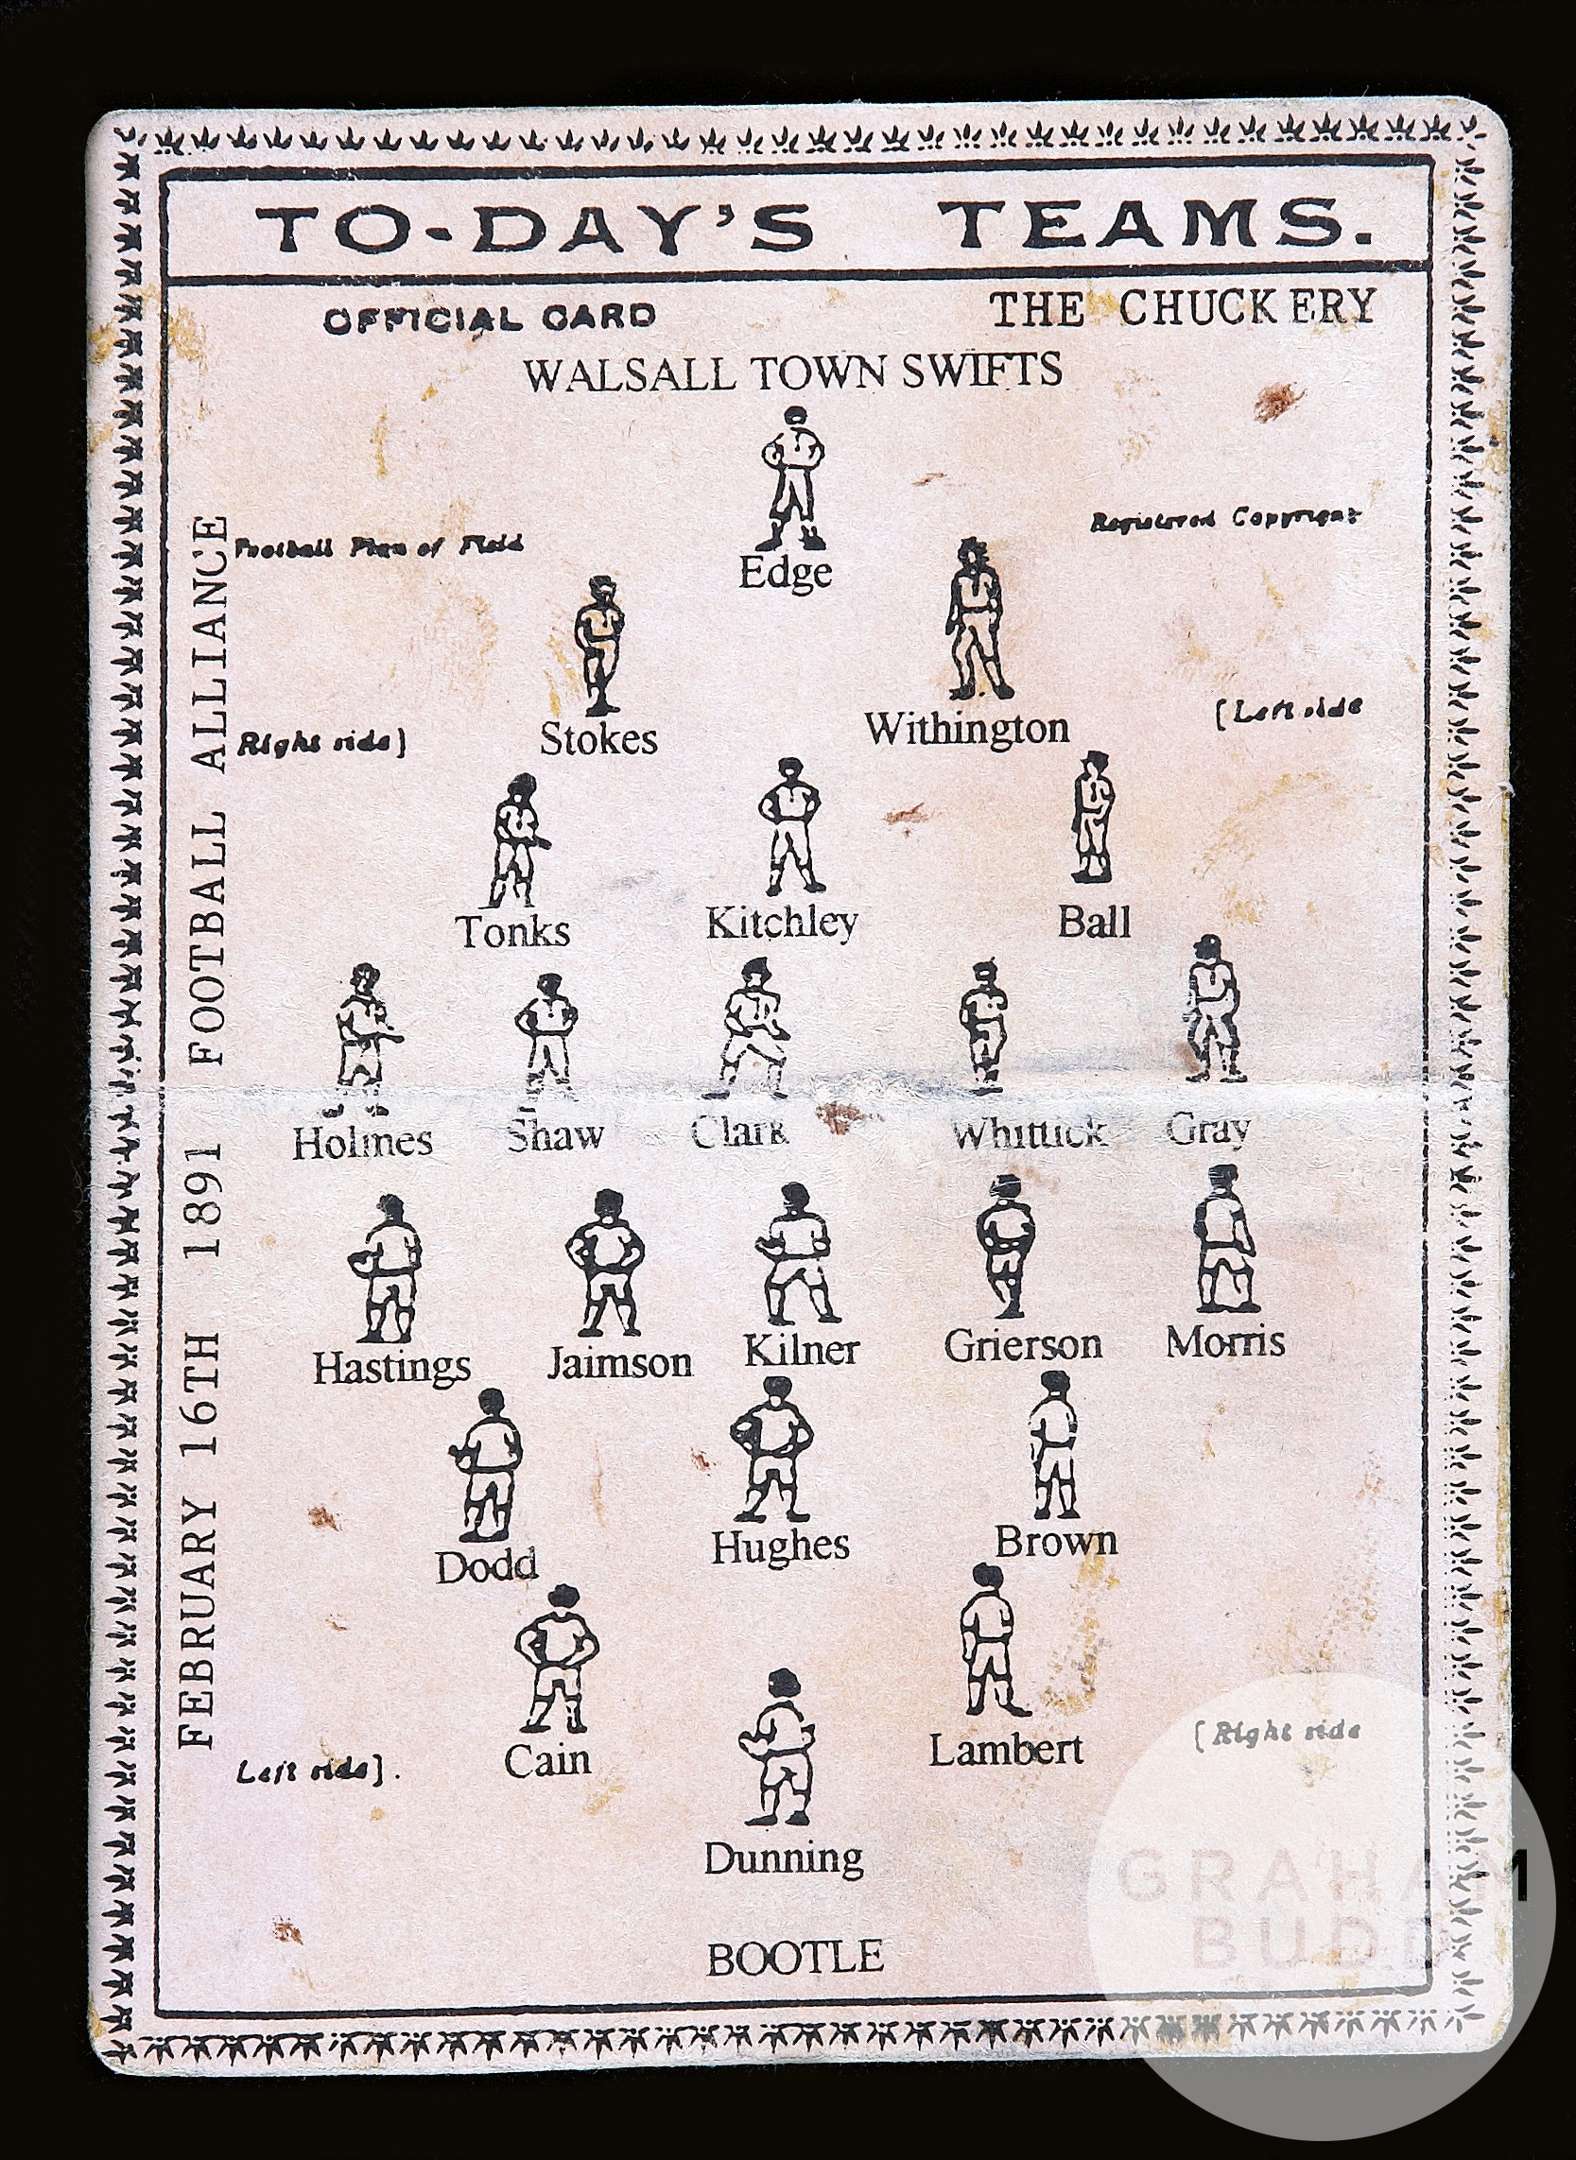 TO-DAY'S TEAMS.
OFFICIAL CARD THE CHUCKERY
WALSALL TOWN SWIFTS
Football Plan of Field Registered Copyright
Edge
Right side] Stokes Withington [Left side
Tonks Kitchley Ball
Holmes Shaw Clark Whittick Gray
Hastings Jaimson Kilner Grierson Morris
Dodd Hughes Brown
Left side]. Cain Lambert [Right side
Dunning
BOOTLE
FEBRUARY 16TH 1891 FOOTBALL ALLIANCE
GRAHAM
BUDD